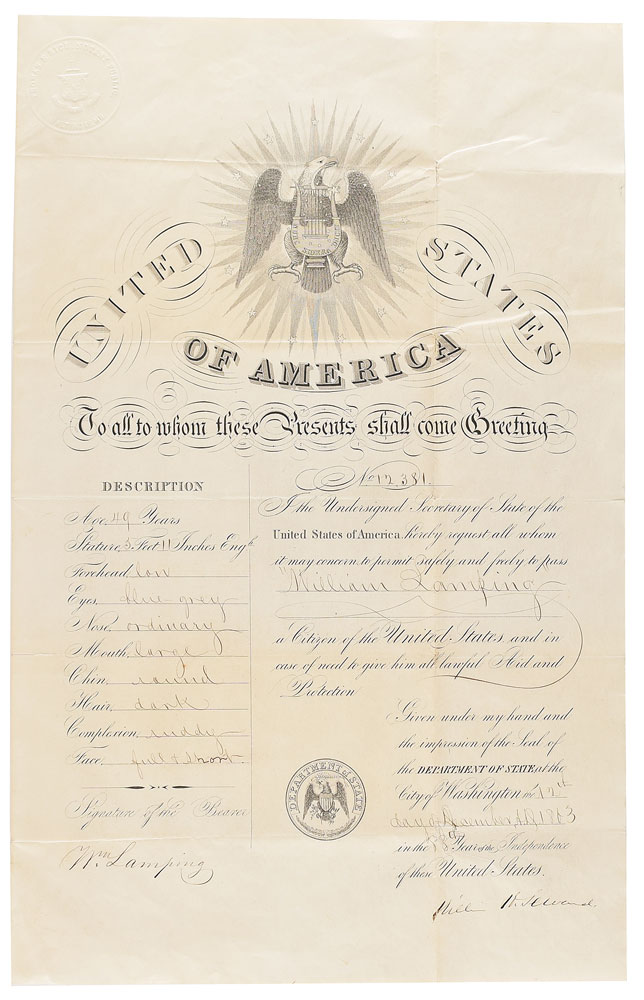 UNITED STATES
OF AMERICA
To all to whom these Presents shall come Greeting
No 12,381
DESCRIPTION
Age, 49 Years
Stature, 5 Feet 11 Inches Engh
Forehead, low
Eyes, blue-grey
Nose, ordinary
Mouth, large
Chin, round
Hair, dark
Complexion, ruddy
Face, full & short
Signature of the Bearer
Wm Lamping
I the Undersigned Secretary of State of the
United States of America, hereby request all whom
it may concern to permit safely and freely to pass
William Lamping
a Citizen of the United States and in
case of need to give him all lawful Aid and
Protection
Given under my hand and
the impression of the Seal of
the DEPARTMENT OF STATE at the
City of Washington, the 12th
day of December A.D. 1863
in the 88th Year of the Independence
of these United States.
William H. Seward
DEPARTMENT OF STATE